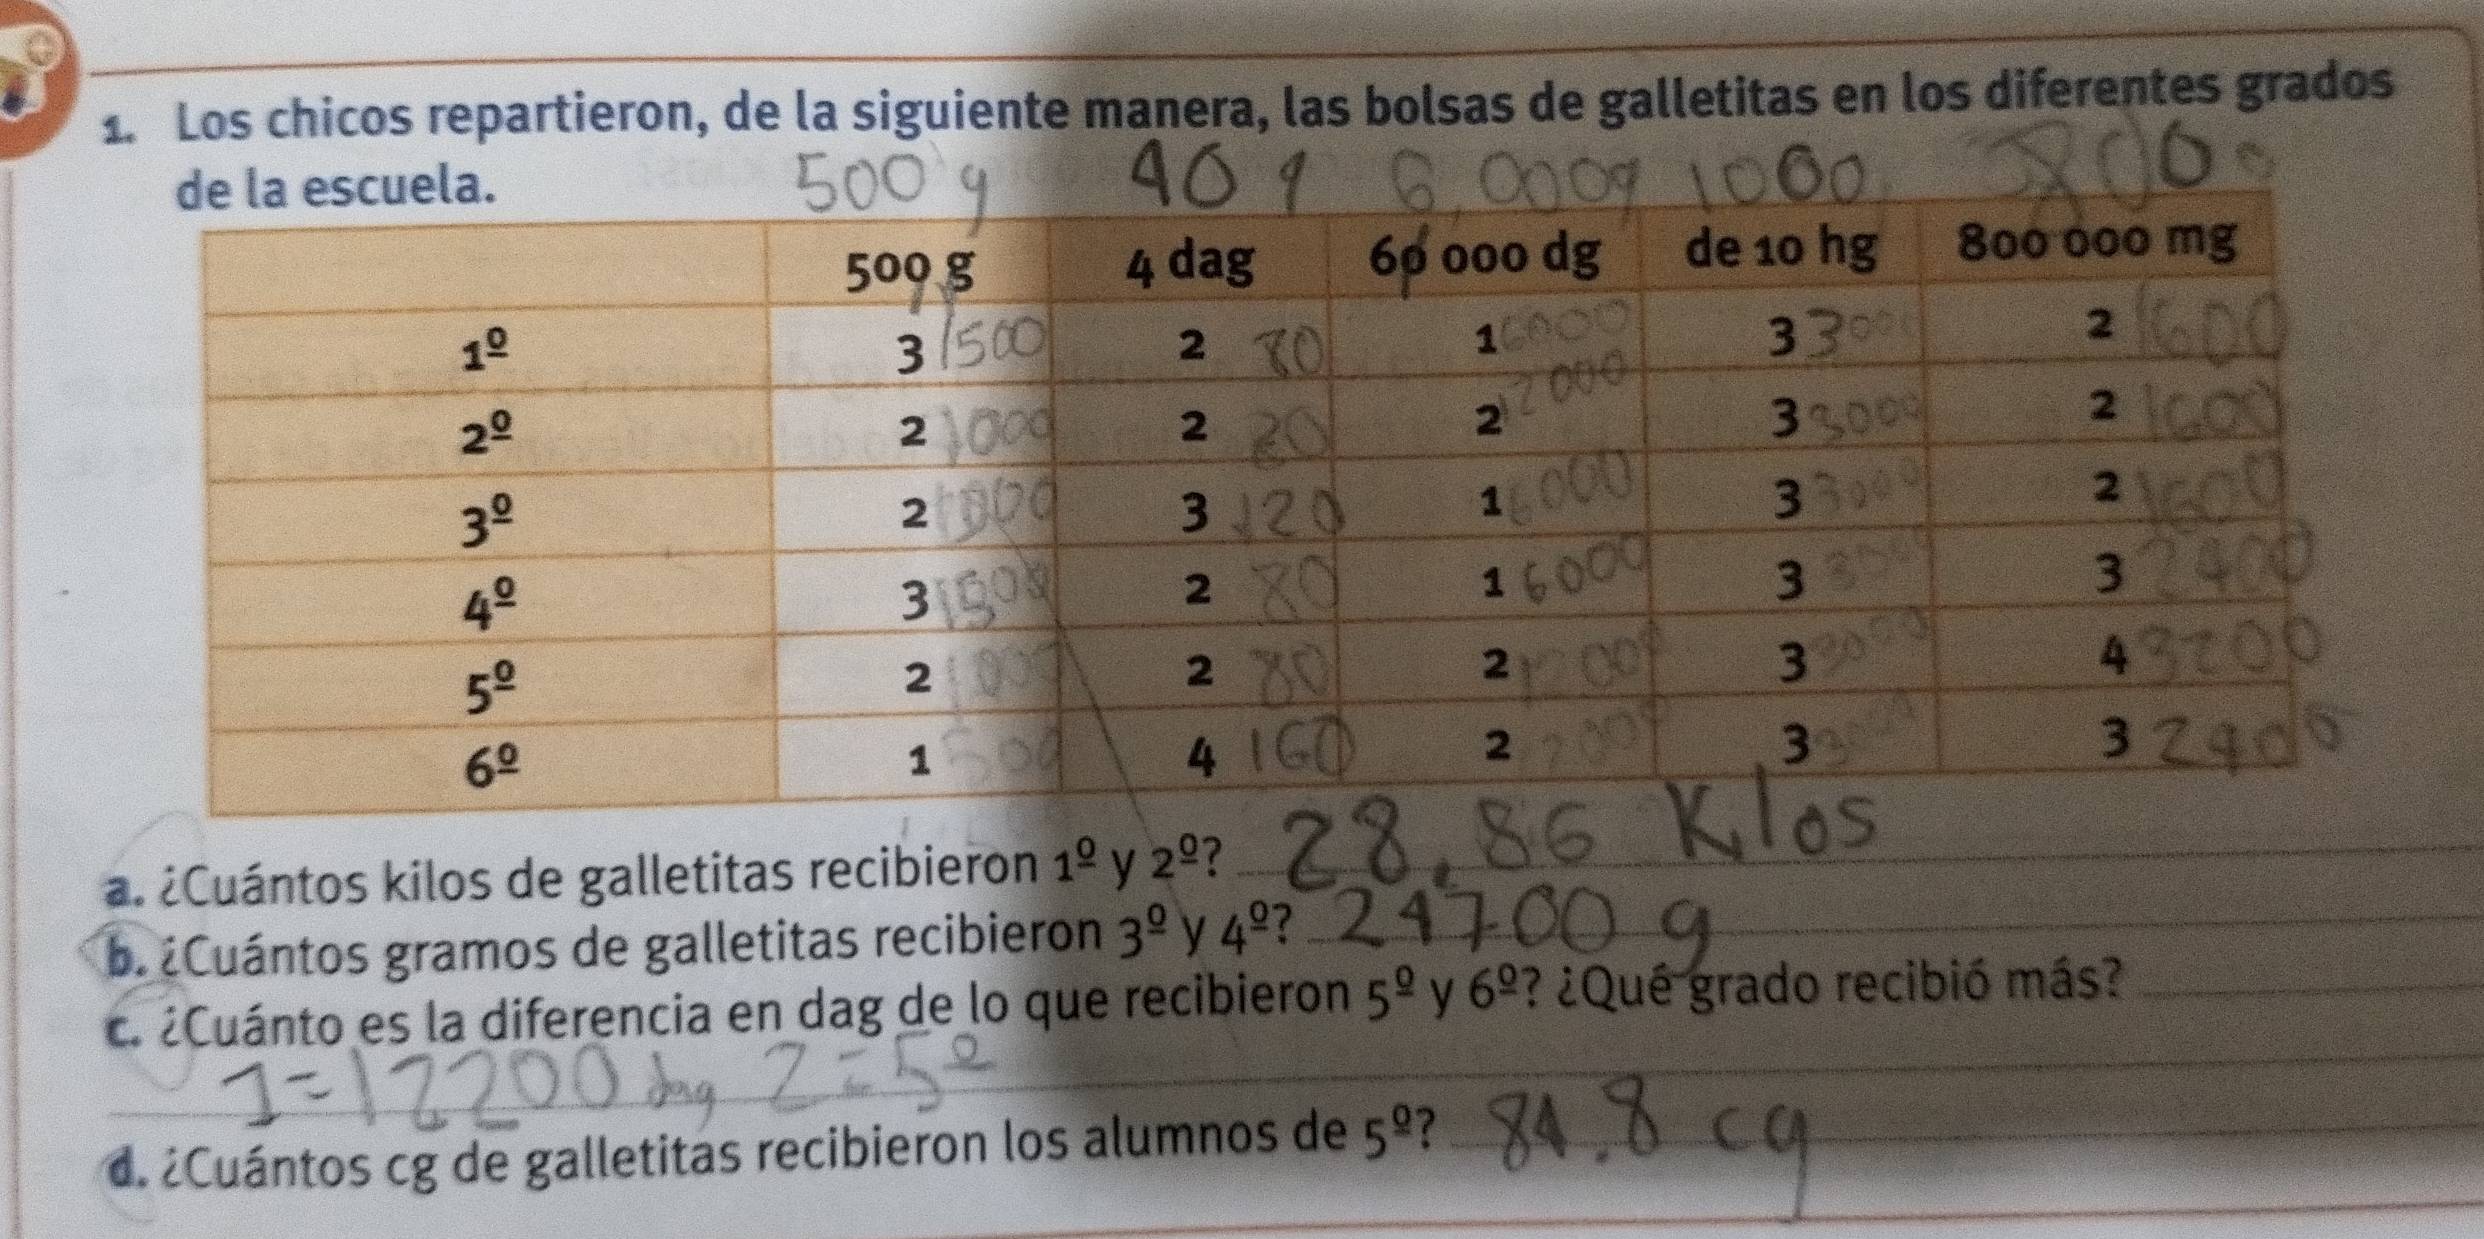 1. Los chicos repartieron, de la siguiente manera, las bolsas de galletitas en los diferentes grados
de la escuela.
500 g 40 g 6.000g 1000 800
500 g 4 dag 60 000 dg de 10 hg 800 000 mg
1º 3 1500 2 80 1 6000 3 300 2 1600
2º 2 1000 2 80 2 12000 3 3000 2 1600
3º 2 1000 3 120 1 6000 3 3000 2 1600
4º 3 1500 2 80 1 6000 3 3 2400
5º 2 1000 2 80 2 3 3000 4 3200
6º 1 500 4 160 2 3 3000 3 2400
a. ¿Cuántos kilos de galletitas recibieron 1º y 2º? 28,86 Kilos
b. ¿Cuántos gramos de galletitas recibieron 3º y 4º? 24700 g
c. ¿Cuánto es la diferencia en dag de lo que recibieron 5º y 6º? ¿Qué grado recibió más?
1=12200 dag 2=5º
d. ¿Cuántos cg de galletitas recibieron los alumnos de 5º? 84.8 cg